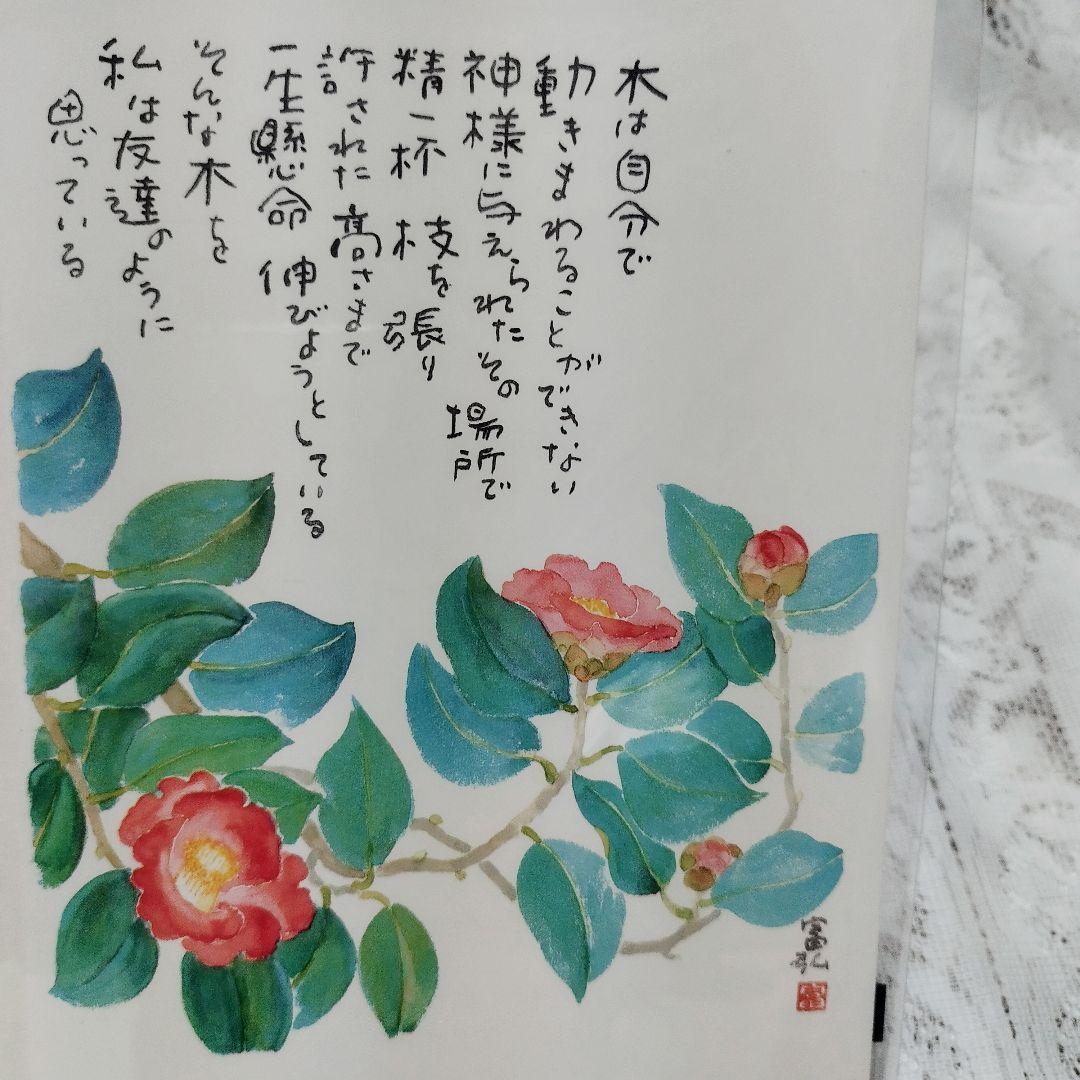 木は自分で
動きまわることができない
神様に与えられたその場所で
精一杯 枝を張り
許された高さまで
一生懸命 伸びようとしている
そんな木を
私は友達のように
思っている
富弘
富